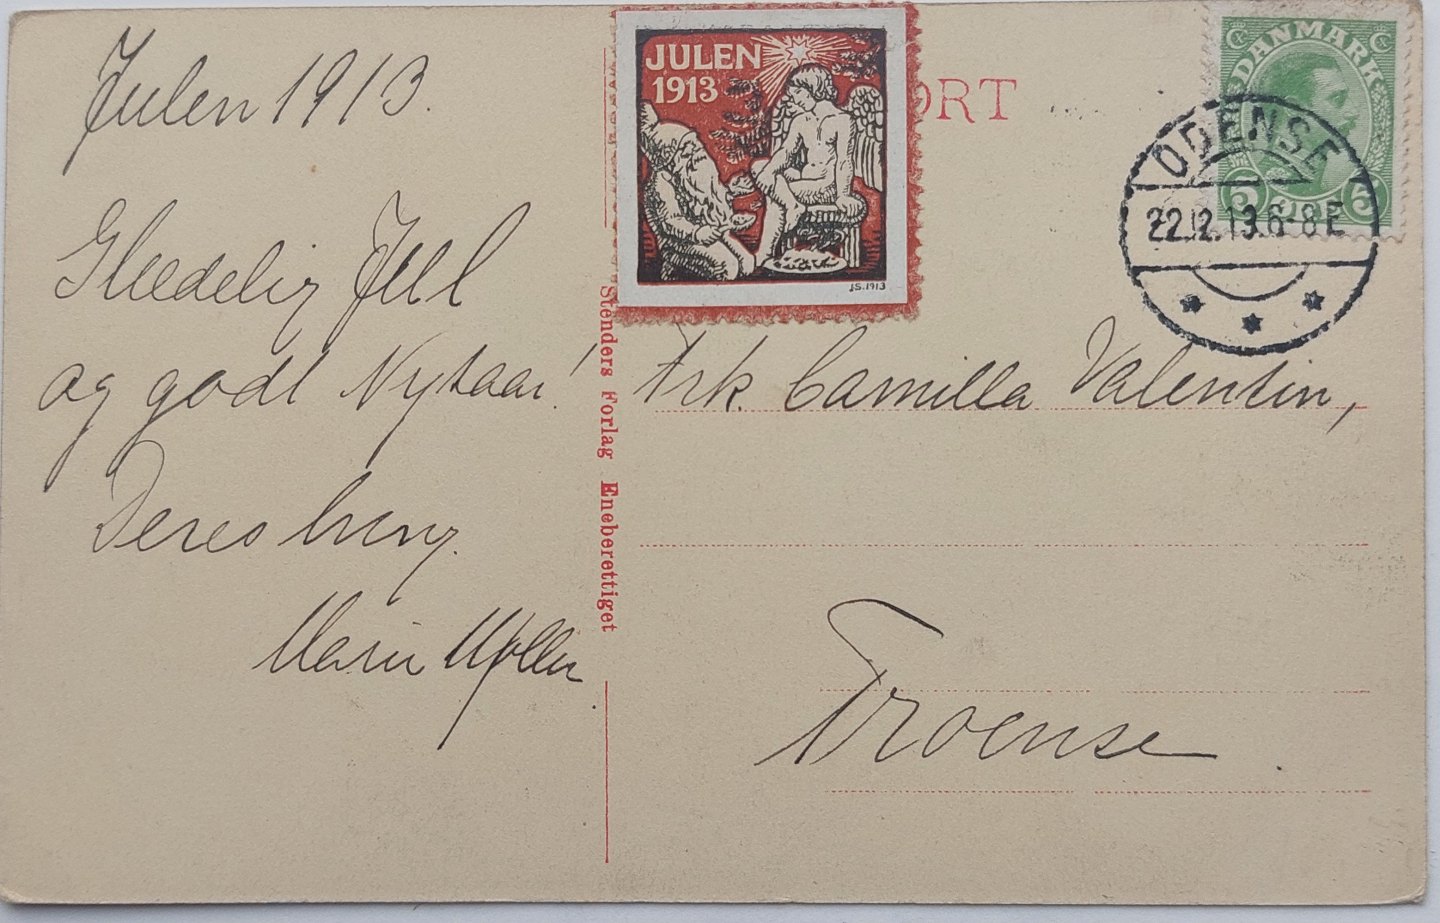 Julen 1913.
Glædelig Jul
og godt Nytaar!
Deres heng.
Marie Møller
JULEN
1913
J.S.1913
ORT
DANMARK
5 5
ODENSE
22.12.13.6-8E
Stenders Forlag Eneberettiget
Frk. Camilla Valentin,
Troense.